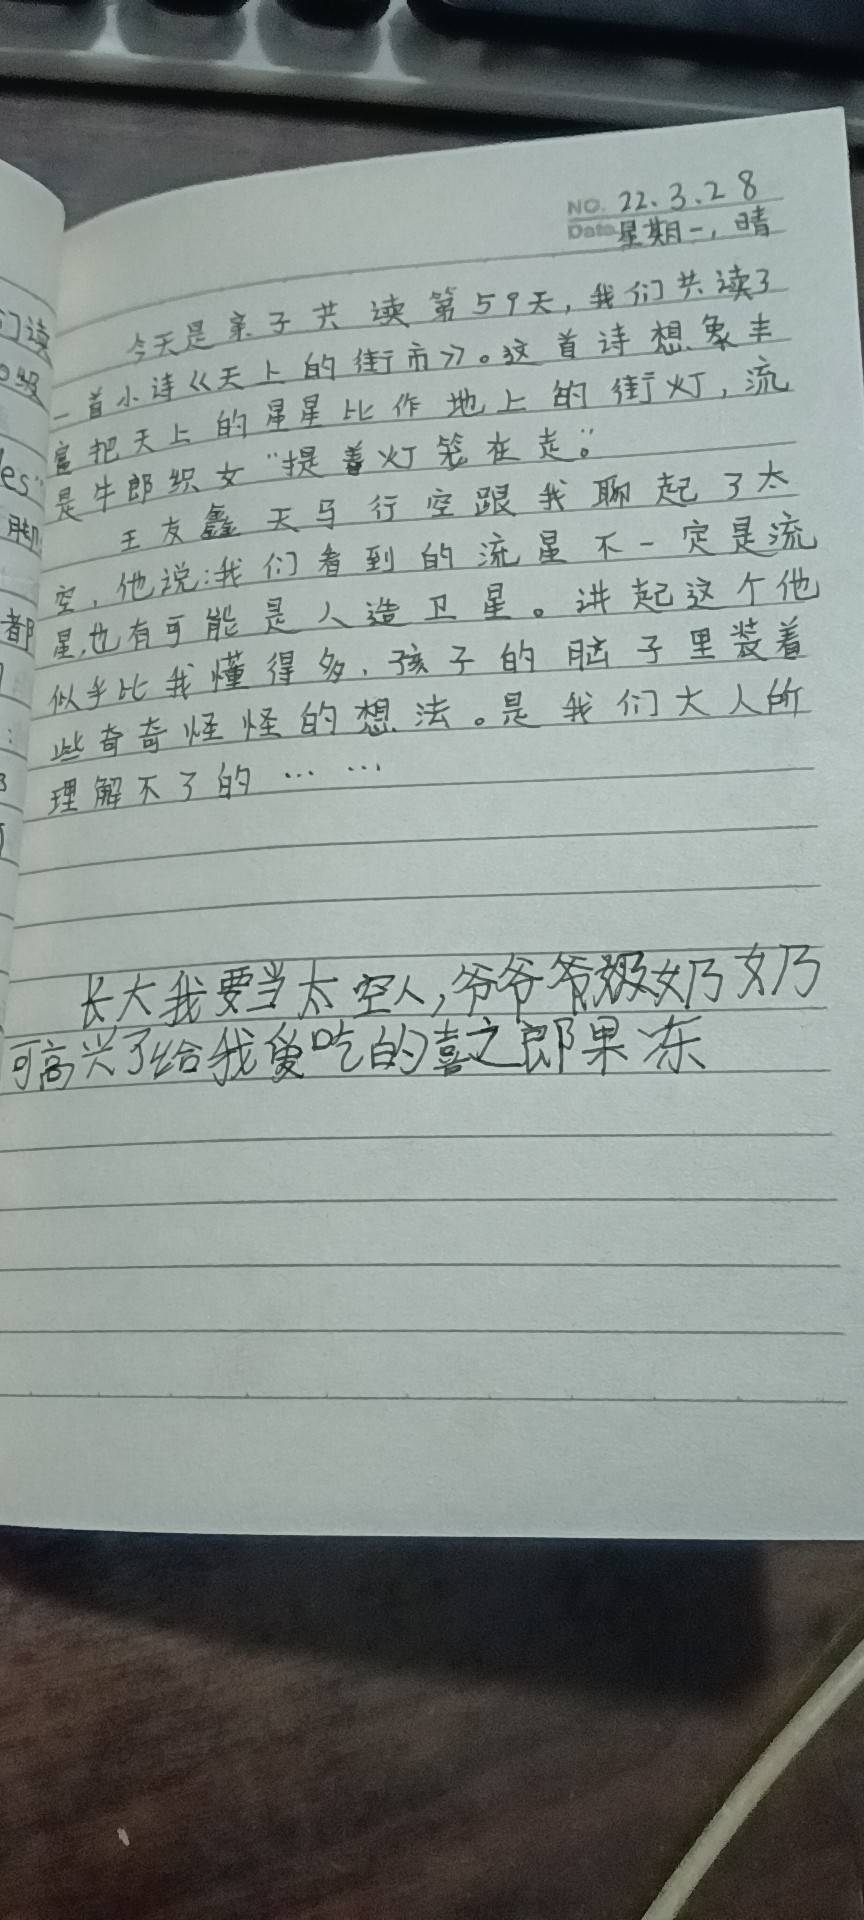 NO. 22.3.28
Date 星期一,晴
今天是亲子共读第59天,我们共读了
一首小诗《天上的街市》。这首诗想象丰
富把天上的星星比作地上的街灯,流
是牛郎织女“提着灯笼在走。”
王友鑫天马行空跟我聊起了太
空,他说:我们看到的流星不一定是流
星,也有可能是人造卫星。讲起这个他
似乎比我懂得多,孩子的脑子里装着
些奇奇怪怪的想法。是我们大人所
理解不了的……
长大我要当太空人,爷爷爷奶奶
可高兴了给我爱吃的喜之郎果冻
们读
级
les"
都